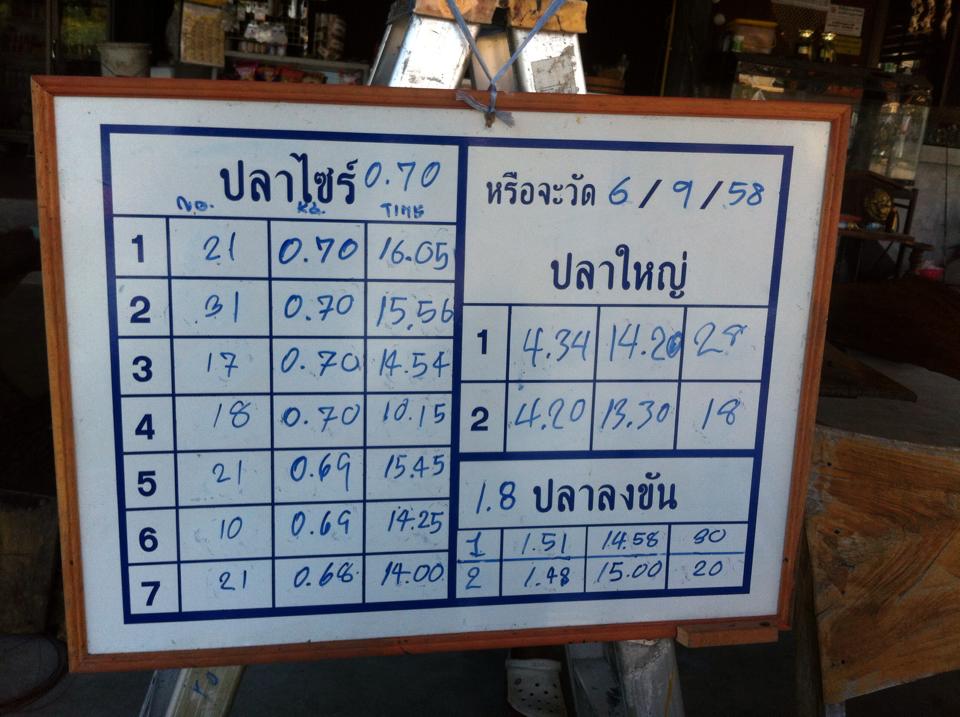 ปลาไซร์ 0.70
No. KG. TIME
1 21 0.70 16.05
2 31 0.70 15.56
3 17 0.70 14.54
4 18 0.70 10.15
5 21 0.69 15.45
6 10 0.69 14.25
7 21 0.68 14.00
หรือจะวัด 6 / 9 / 58
ปลาใหญ่
1 4.34 14.20 28
2 4.20 13.30 18
1.8 ปลาลงขัน
1 1.51 14.58 30
2 1.48 15.00 20